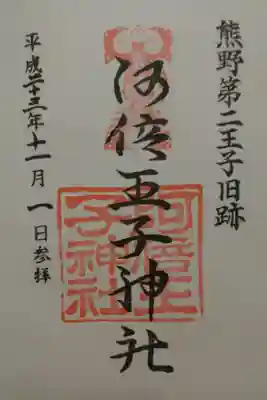 熊野第二王子旧跡
阿倍王子神社
平成二十三年十一月一日参拝
阿倍王子神社